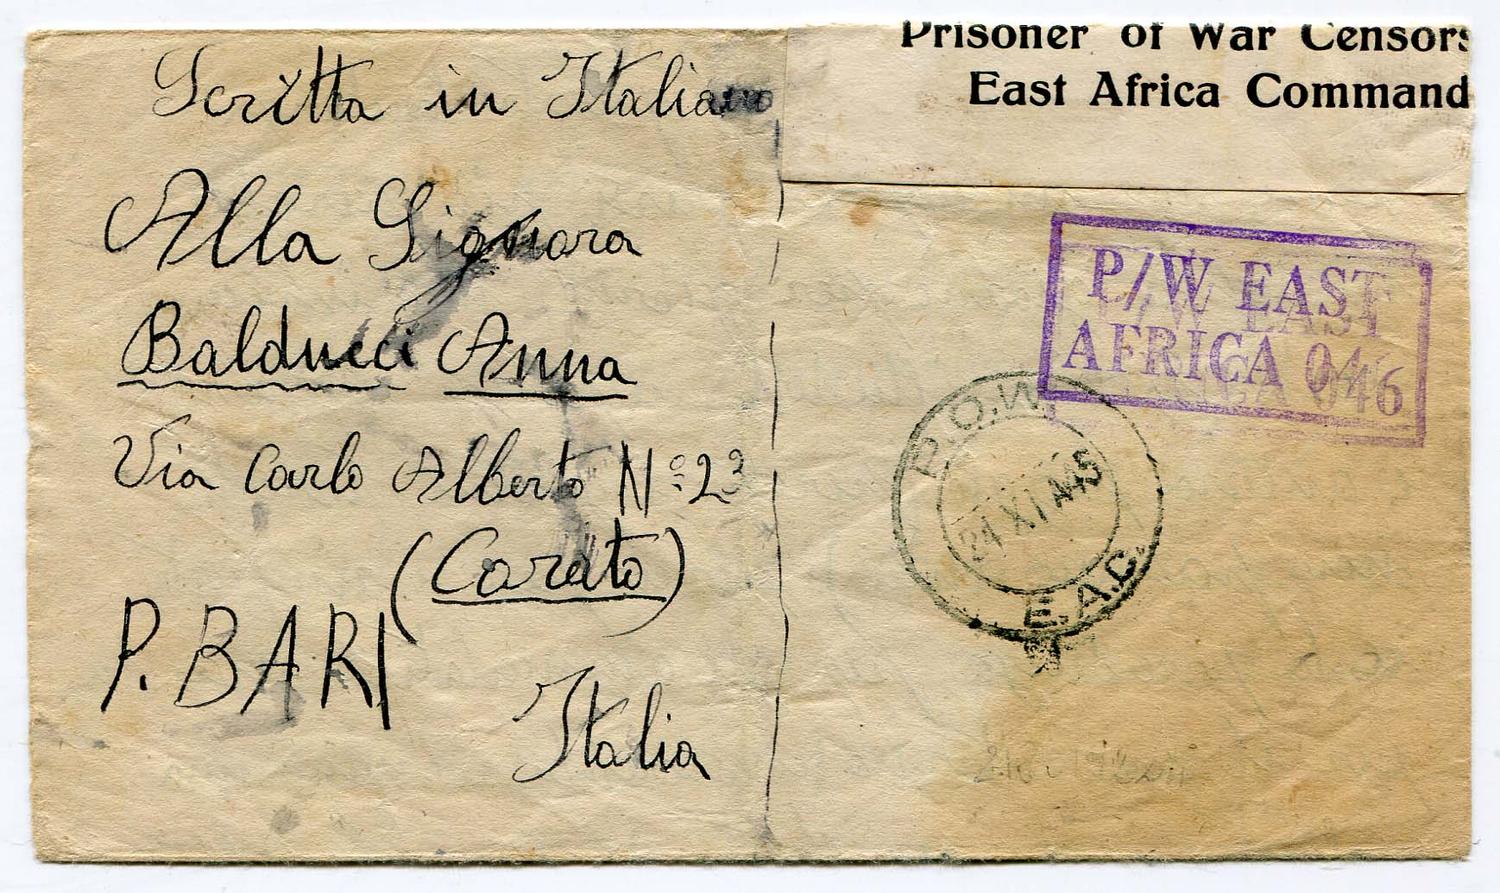 Scritta in Italiano
Alla Signora
Balducci Anna
Via Carlo Alberto N° 23
(Corato)
P. BARI
Italia
Prisoner of War Censors
East Africa Command
P/W EAST
AFRICA 046
P.O.W.
24 XI A45
E.A.C.